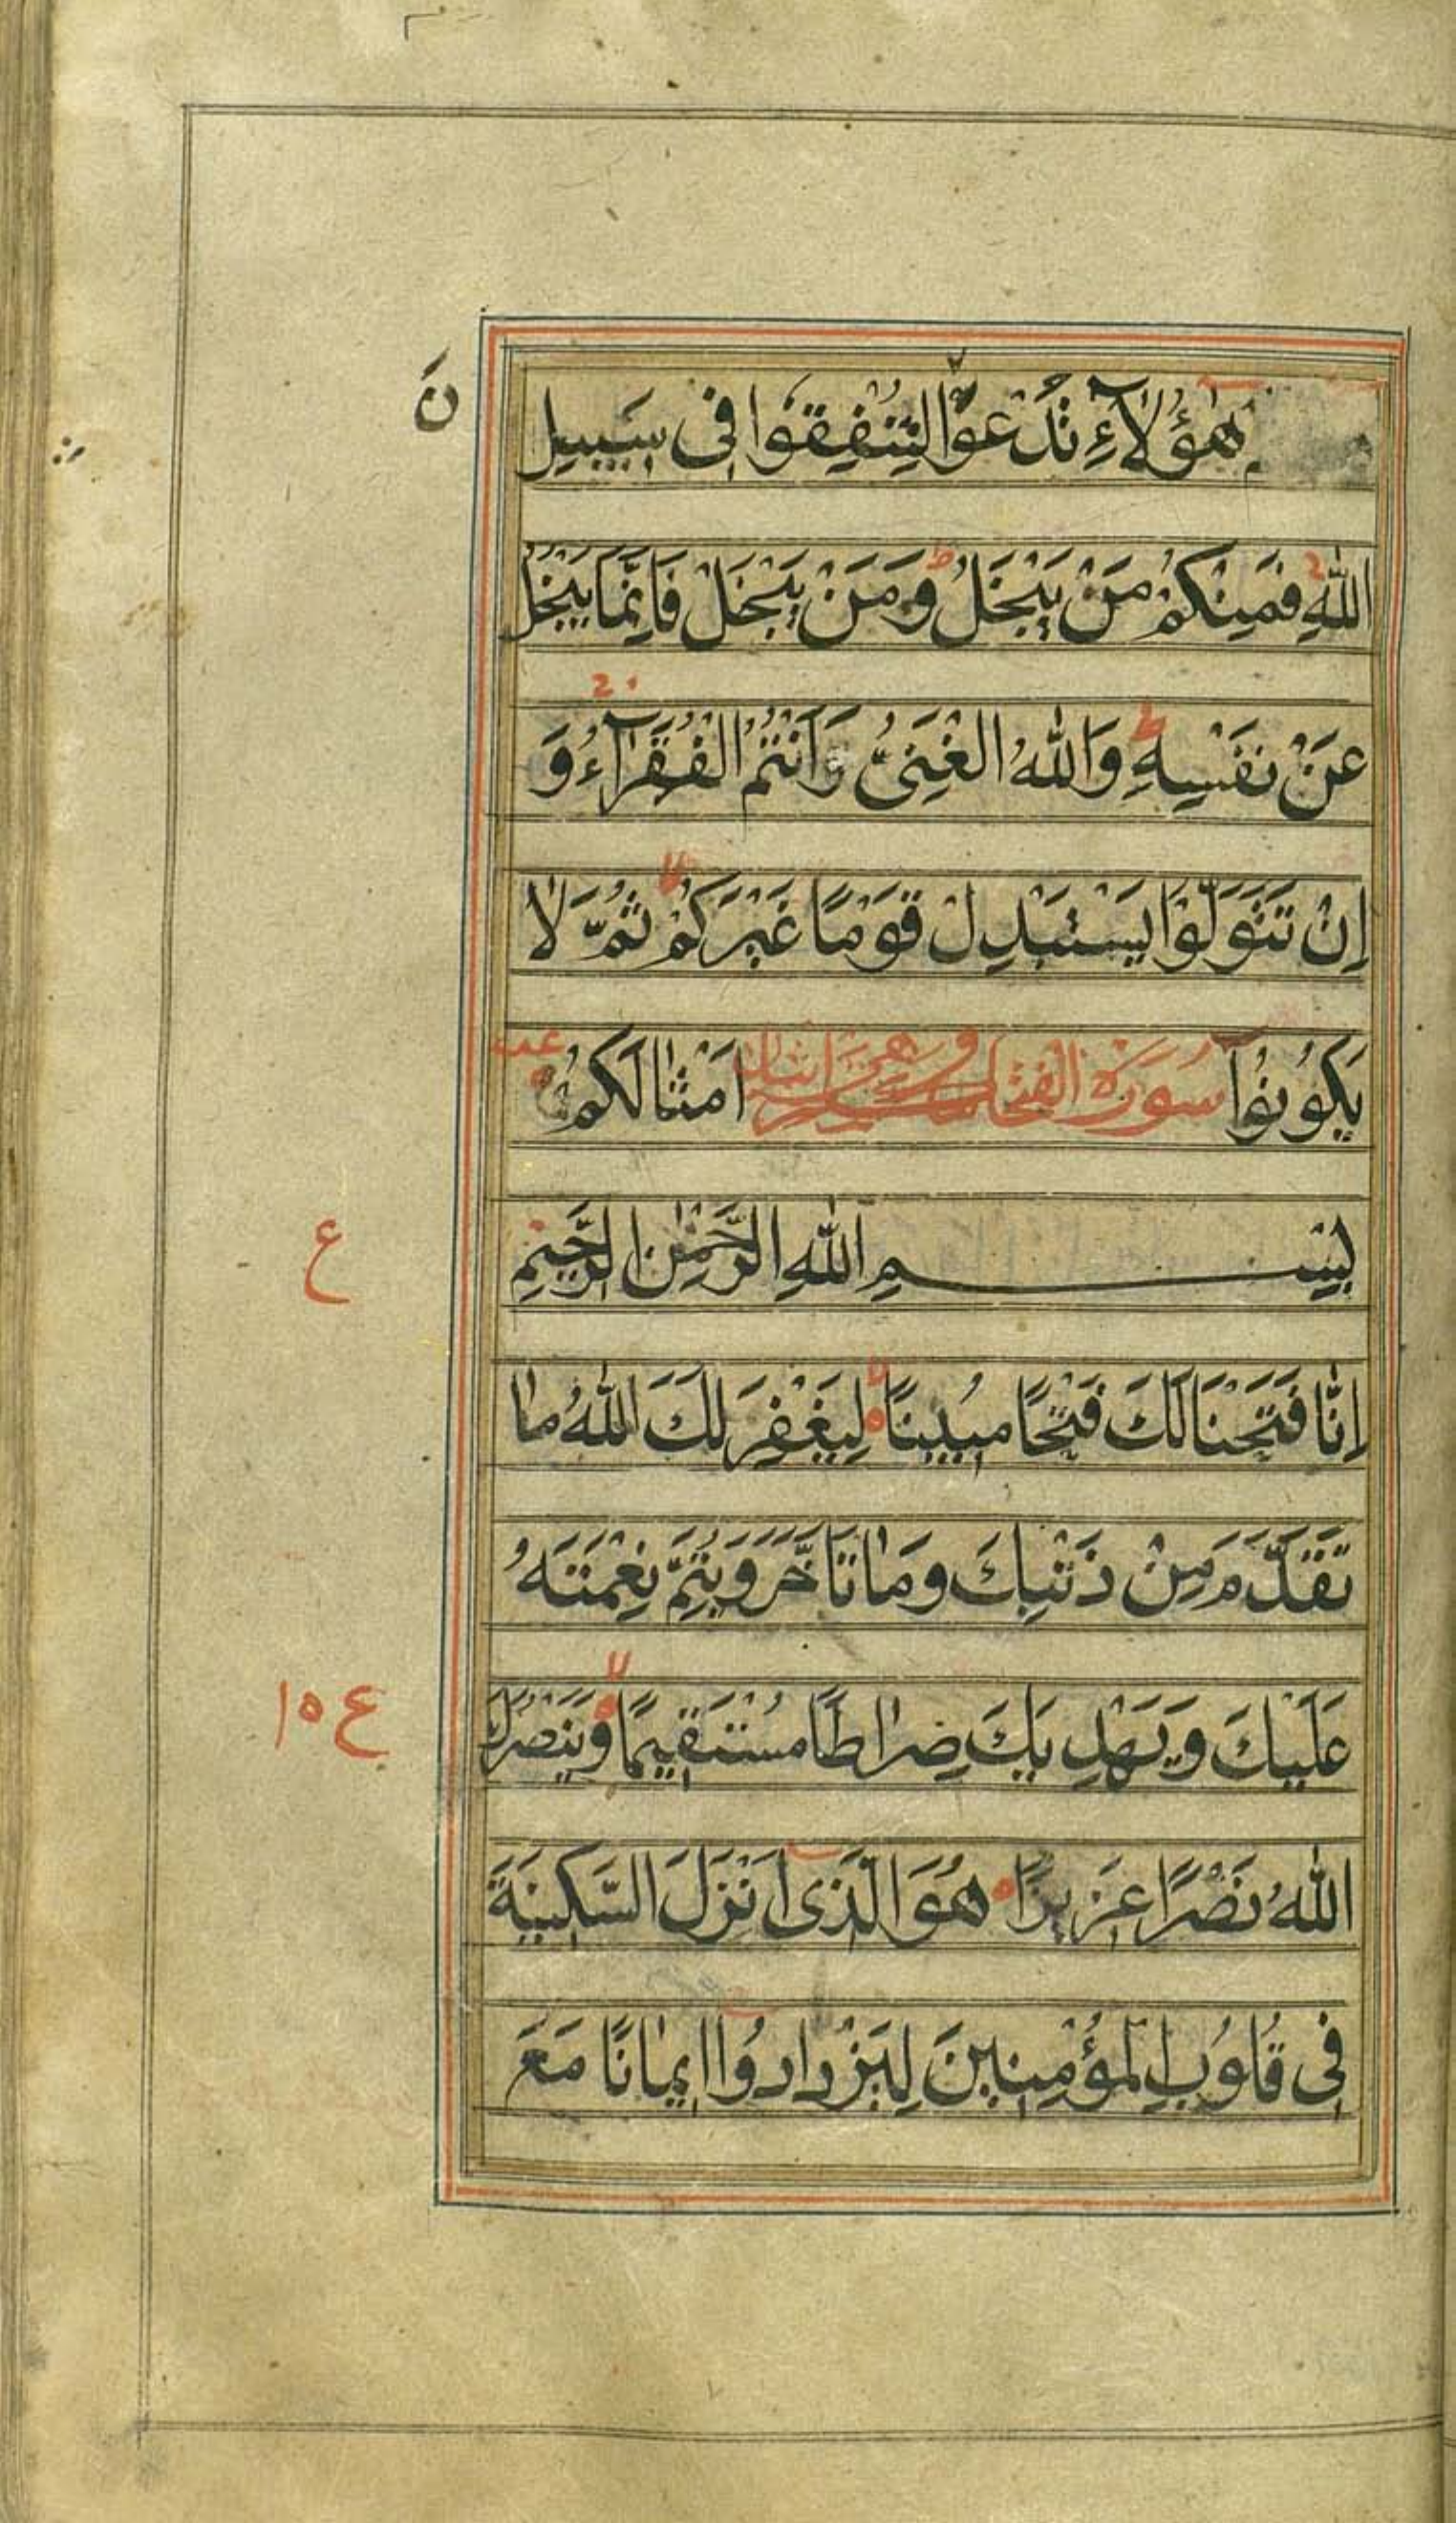 هٰٓؤُلَآءِ تُدْعَوْنَ لِتُنْفِقُوْا فِیْ سَبِیْلِ
اللّٰهِ فَمِنْكُمْ مَنْ یَبْخَلُ ط وَمَنْ یَبْخَلْ فَاِنَّمَا یَبْخَلُ
عَنْ نَفْسِهٖ ط وَاللّٰهُ الْغَنِیُّ وَاَنْتُمُ الْفُقَرَآءُ وَ
اِنْ تَتَوَلَّوْا یَسْتَبْدِلْ قَوْمًا غَیْرَكُمْ لا ثُمَّ لَا
یَكُوْنُوْٓا سُورَة الفتح اَمْثَالَكُمْ
بِسْمِ اللّٰهِ الرَّحْمٰنِ الرَّحِیْمِ
ع
اِنَّا فَتَحْنَا لَكَ فَتْحًا مُبِیْنًا لا لِیَغْفِرَ لَكَ اللّٰهُ مَا
تَقَدَّمَ مِنْ ذَنْبِكَ وَمَا تَاَخَّرَ وَیُتِمَّ نِعْمَتَهٗ
عَلَیْكَ وَیَهْدِیَكَ صِرَاطًا مُسْتَقِیْمًا لا وَیَنْصُرَكَ
ع ١٥
اللّٰهُ نَصْرًا عَزِیْزًا هُوَ الَّذِیْٓ اَنْزَلَ السَّكِیْنَةَ
فِیْ قُلُوْبِ الْمُؤْمِنِیْنَ لِیَزْدَادُوْٓا اِیْمَانًا مَعَ